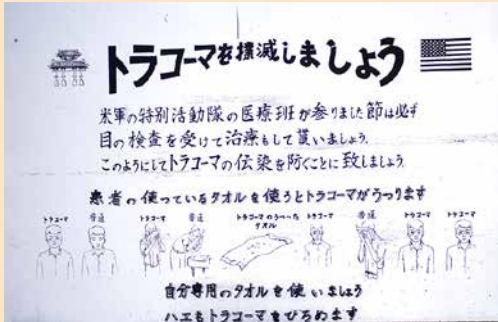 トラコーマを撲滅しましょう
米軍の特別活動隊の医療班が参りました節は必ず
目の検査を受けて治療もして貰いましょう。
このようにしてトラコーマの伝染を防ぐことに致しましょう
患者の使っているタオルを使うとトラコーマがうつります
トラコーマ 普通 トラコーマ 普通 トラコーマのうつった トラコーマ 普通 トラコーマ トラコーマ
タオル
自分専用のタオルを使いましょう
ハエもトラコーマをひろめます